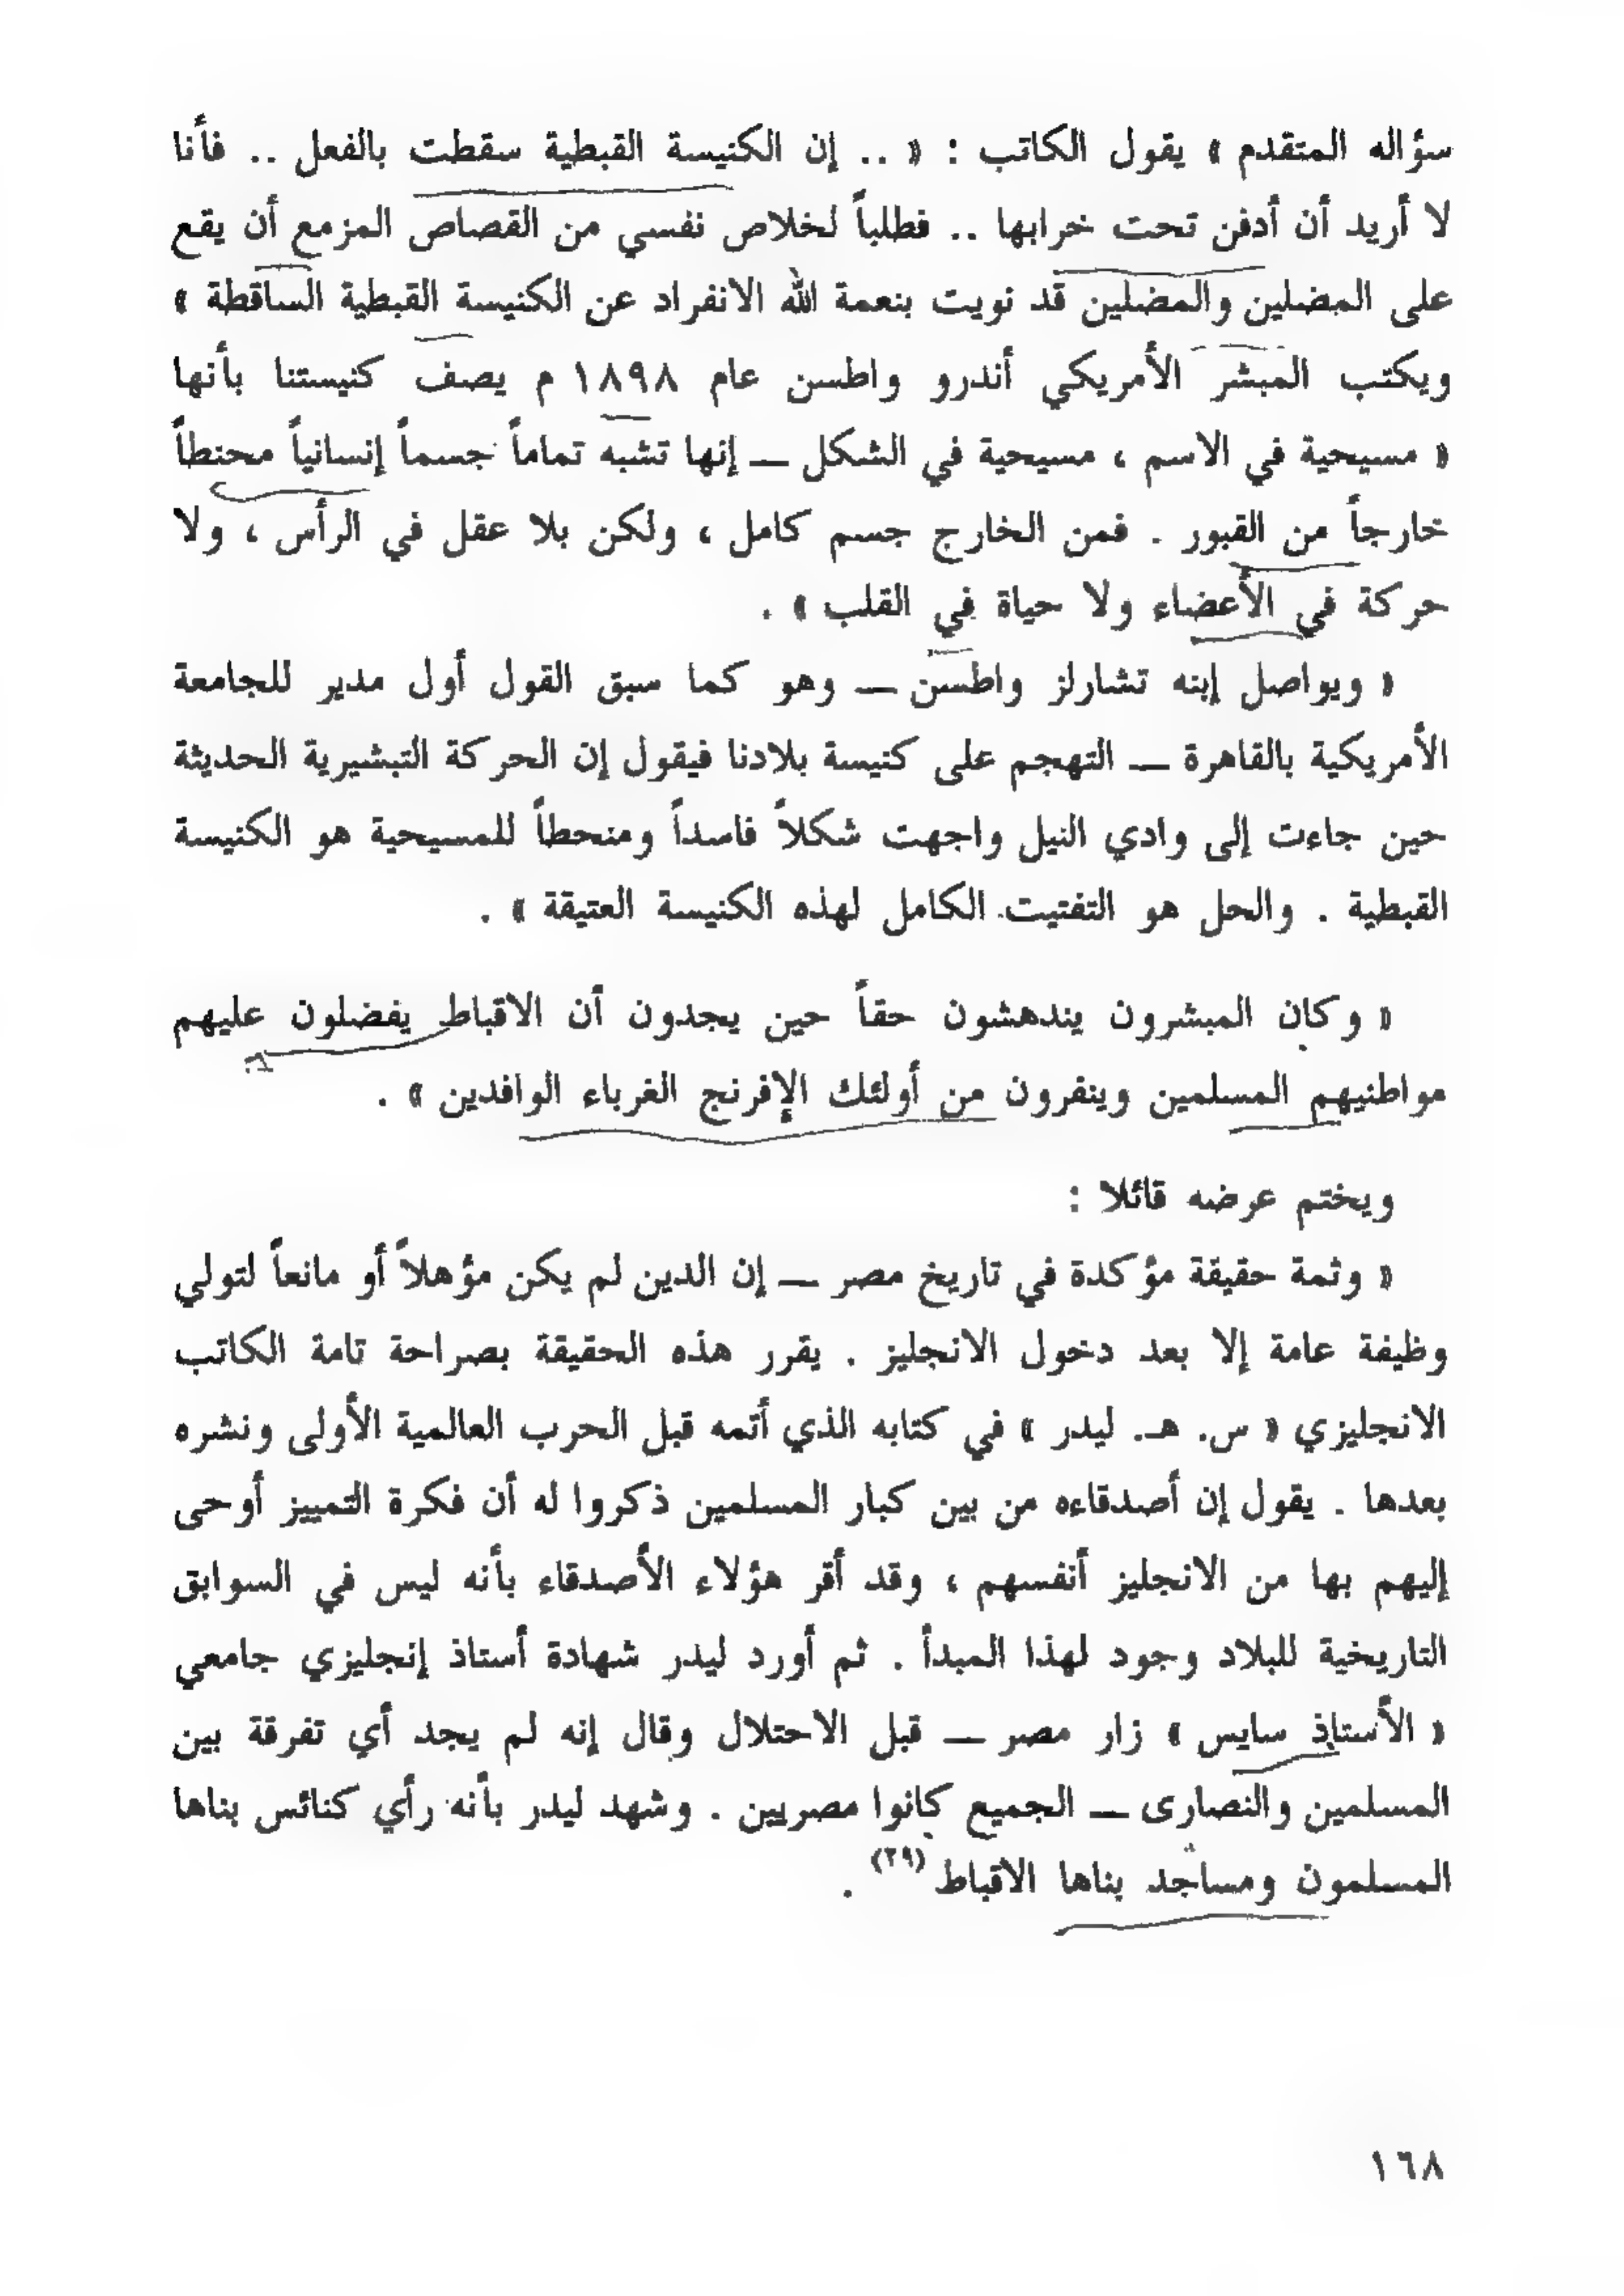 سؤاله المتقدم » يقول الكاتب : « .. إن الكنيسة القبطية سقطت بالفعل .. فأنا
لا أريد أن أدفن تحت خرابها .. فطلباً لخلاص نفسي من القصاص المزمع أن يقع
على المضلين والمضلين قد نويت بنعمة الله الانفراد عن الكنيسة القبطية الساقطة »
ويكتب المبشر الأمريكي أندرو واطسن عام ١٨٩٨ م يصف كنيستنا بأنها
« مسيحية في الاسم ، مسيحية في الشكل — إنها تشبه تماماً جسماً إنسانياً محنطاً
خارجاً من القبور . فمن الخارج جسم كامل ، ولكن بلا عقل في الرأس ، ولا
حركة في الأعضاء ولا حياة في القلب » .
« ويواصل إبنه تشارلز واطسن — وهو كما سبق القول أول مدير للجامعة
الأمريكية بالقاهرة — التهجم على كنيسة بلادنا فيقول إن الحركة التبشيرية الحديثة
حين جاءت إلى وادي النيل واجهت شكلاً فاسداً ومنحطاً للمسيحية هو الكنيسة
القبطية . والحل هو التفتيت الكامل لهذه الكنيسة العتيقة » .
« وكان المبشرون يندهشون حقاً حين يجدون أن الاقباط يفضلون عليهم
مواطنيهم المسلمين وينفرون من أولئك الإفرنج الغرباء الوافدين » .
ويختم عرضه قائلا :
« وثمة حقيقة مؤكدة في تاريخ مصر — إن الدين لم يكن مؤهلاً أو مانعاً لتولي
وظيفة عامة إلا بعد دخول الانجليز . يقرر هذه الحقيقة بصراحة تامة الكاتب
الانجليزي « س. هـ. ليدر » في كتابه الذي أتمه قبل الحرب العالمية الأولى ونشره
بعدها . يقول إن أصدقاءه من بين كبار المسلمين ذكروا له أن فكرة التمييز أوحى
إليهم بها من الانجليز أنفسهم ، وقد أقر هؤلاء الأصدقاء بأنه ليس في السوابق
التاريخية للبلاد وجود لهذا المبدأ . ثم أورد ليدر شهادة أستاذ إنجليزي جامعي
« الأستاذ سايس » زار مصر — قبل الاحتلال وقال إنه لم يجد أي تفرقة بين
المسلمين والنصارى — الجميع كانوا مصريين . وشهد ليدر بأنه رأي كنائس بناها
المسلمون ومساجد بناها الاقباط (٢٩) .
١٦٨